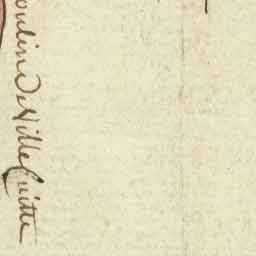 oulin de Ville Cuitte